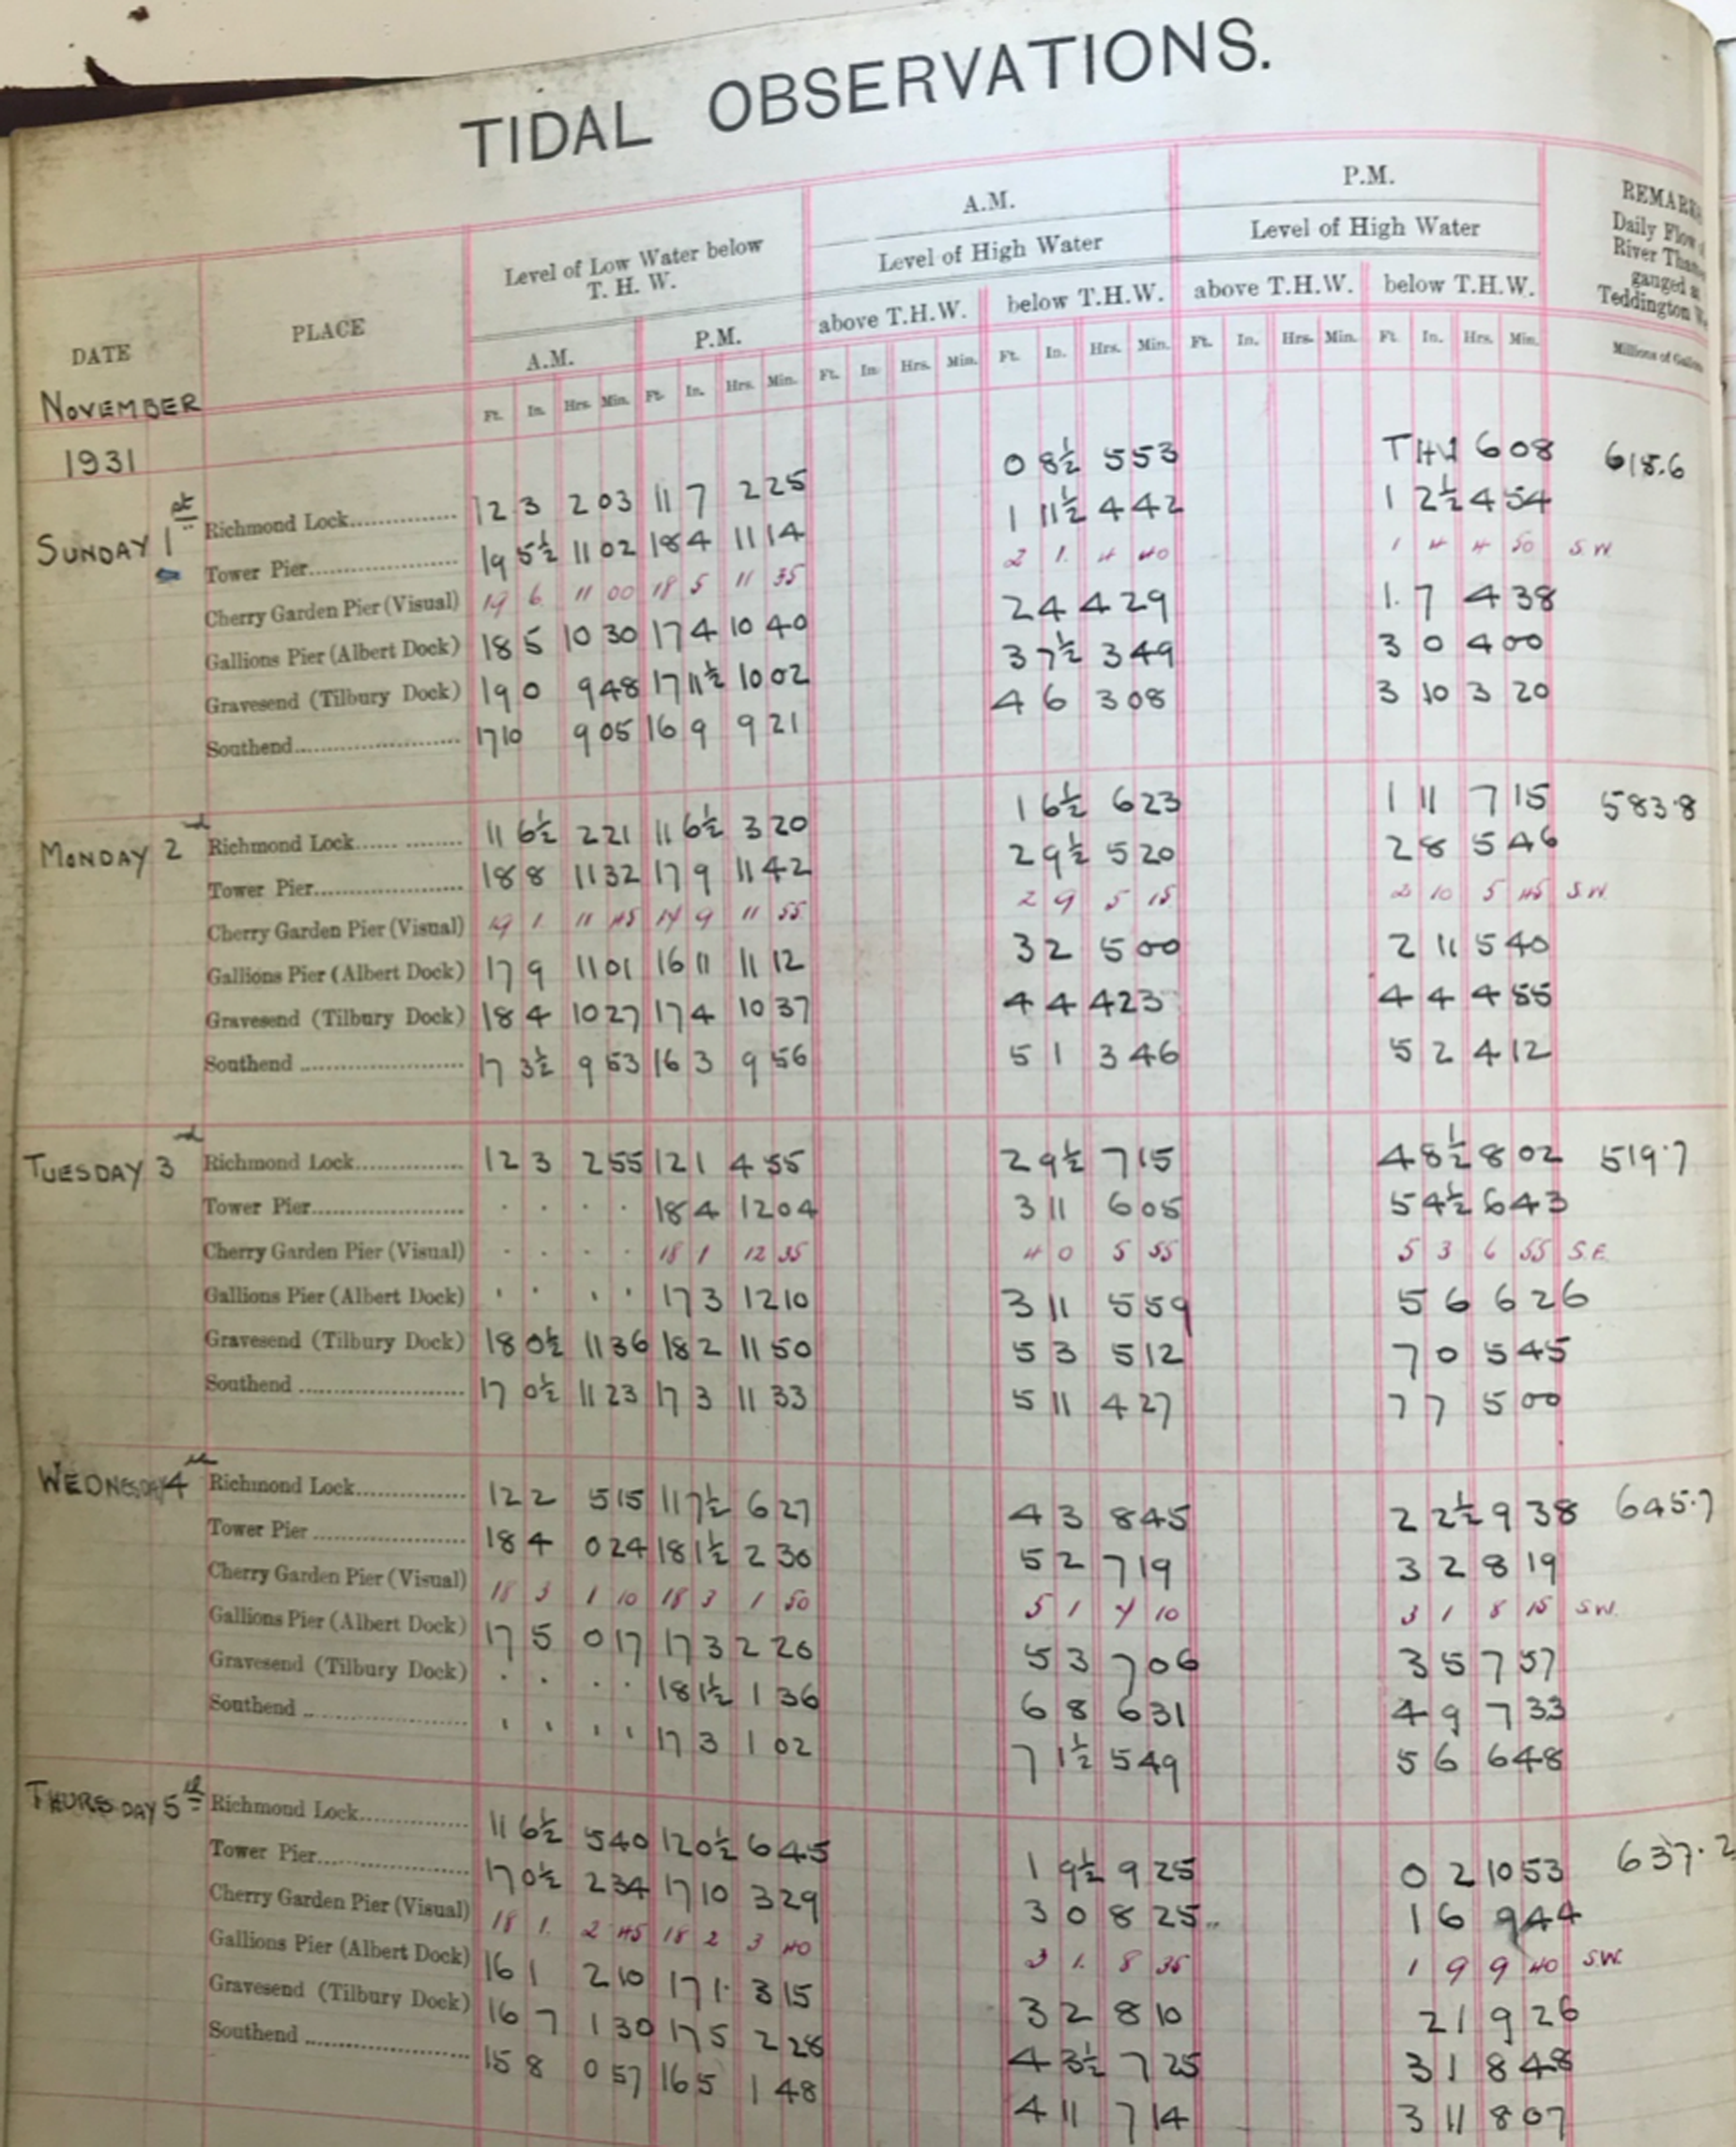 TIDAL OBSERVATIONS.
DATE PLACE Level of Low Water below T. H. W. A.M. P.M. REMARKS
Level of High Water Level of High Water Daily Flow
above T.H.W. below T.H.W. above T.H.W. below T.H.W. River gauged Teddington
A.M. P.M. Millions of
Ft. In. Hrs. Min. Ft. In. Hrs. Min. Ft. In. Hrs. Min. Ft. In. Hrs. Min. Ft. In. Hrs. Min. Ft. In. Hrs. Min.
NOVEMBER
1931
SUNDAY 1st Richmond Lock 12 3 2 03 11 7 2 25 0 8½ 5 53 THW 6 08 618.6
Tower Pier 19 5½ 11 02 18 4 11 14 1 11½ 4 42 1 2½ 4 54
Cherry Garden Pier (Visual) 19 6 11 00 18 5 11 35 2 1. 4 40 1 4 4 50 S.W.
Gallions Pier (Albert Dock) 18 5 10 30 17 4 10 40 2 4 4 29 1. 7 4 38
Gravesend (Tilbury Dock) 19 0 9 48 17 11½ 10 02 3 7½ 3 49 3 0 4 00
Southend 17 10 9 05 16 9 9 21 4 6 3 08 3 10 3 20
MONDAY 2nd Richmond Lock 11 6½ 2 21 11 6½ 3 20 1 6½ 6 23 1 11 7 15 583.8
Tower Pier 18 8 11 32 17 9 11 42 2 9½ 5 20 2 8 5 46
Cherry Garden Pier (Visual) 19 1. 11 45 17 9 11 55 2 9 5 15 2 10 5 45 S.W.
Gallions Pier (Albert Dock) 17 9 11 01 16 11 11 12 3 2 5 00 2 11 5 40
Gravesend (Tilbury Dock) 18 4 10 27 17 4 10 37 4 4 4 23 4 4 4 55
Southend 17 3½ 9 53 16 3 9 56 5 1 3 46 5 2 4 12
TUESDAY 3rd Richmond Lock 12 3 2 55 12 1 4 55 2 9½ 7 15 4 8½ 8 02 519.7
Tower Pier . . . . 18 4 12 04 3 11 6 05 5 4½ 6 43
Cherry Garden Pier (Visual) . . . . 18 1 12 35 4 0 5 55 5 3 6 55 S.E.
Gallions Pier (Albert Dock) . . . . 17 3 12 10 3 11 5 59 5 6 6 26
Gravesend (Tilbury Dock) 18 0½ 11 36 18 2 11 50 5 3 5 12 7 0 5 45
Southend 17 0½ 11 23 17 3 11 33 5 11 4 27 7 7 5 00
WEDNESDAY 4th Richmond Lock 12 2 5 15 11 7½ 6 27 4 3 8 45 2 2½ 9 38 645.7
Tower Pier 18 4 0 24 18 1½ 2 30 5 2 7 19 3 2 8 19
Cherry Garden Pier (Visual) 18 3 1 10 18 3 1 50 5 1 7 10 3 1 8 15 S.W.
Gallions Pier (Albert Dock) 17 5 0 17 17 3 2 20 5 3 7 06 3 5 7 57
Gravesend (Tilbury Dock) . . . . 18 1½ 1 36 6 8 6 31 4 9 7 33
Southend . . . . 17 3 1 02 7 1½ 5 49 5 6 6 48
THURSDAY 5th Richmond Lock 11 6½ 5 40 12 0½ 6 45 1 9½ 9 25 0 2 10 53 637.2
Tower Pier 17 0½ 2 34 17 10 3 29 3 0 8 25 1 6 9 44
Cherry Garden Pier (Visual) 18 1. 2 45 18 2 3 40 3 1. 8 35 1 9 9 40 S.W.
Gallions Pier (Albert Dock) 16 1 2 10 17 1. 3 15 3 2 8 10 2 1 9 26
Gravesend (Tilbury Dock) 16 7 1 30 17 5 2 28 4 3½ 7 25 3 1 8 48
Southend 15 8 0 57 16 5 1 48 4 11 7 14 3 11 8 07